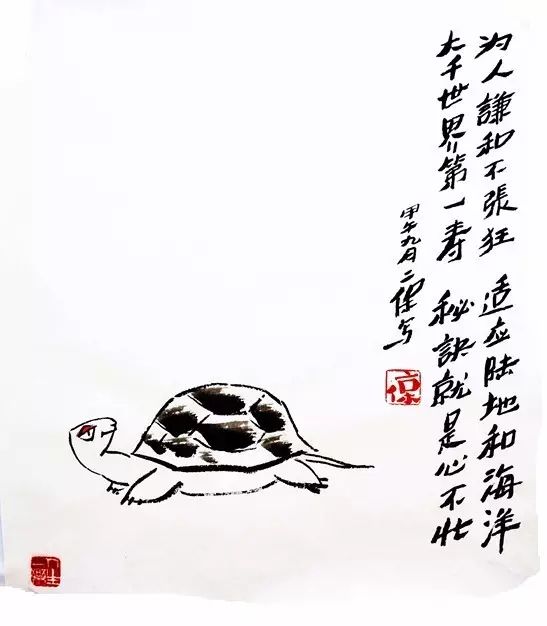 为人謙和不張狂 适应陆地和海洋
大千世界第一寿 秘訣就是心不
甲午九月二写